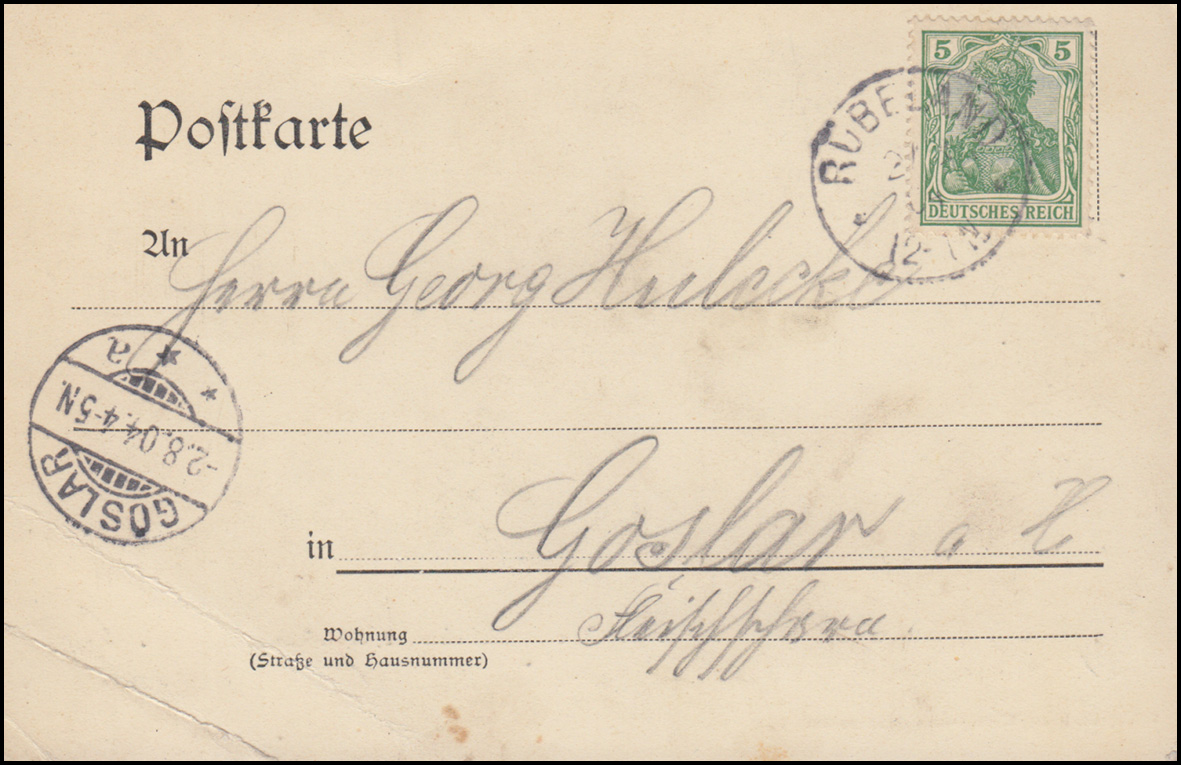 Postkarte
5 5
DEUTSCHES REICH
RÜBELAND
12-1N
An Herrn Georg
a
-2.8.04.4-5N.
GOSLAR
in Goslar a H
Wohnung
(Straße und Hausnummer)